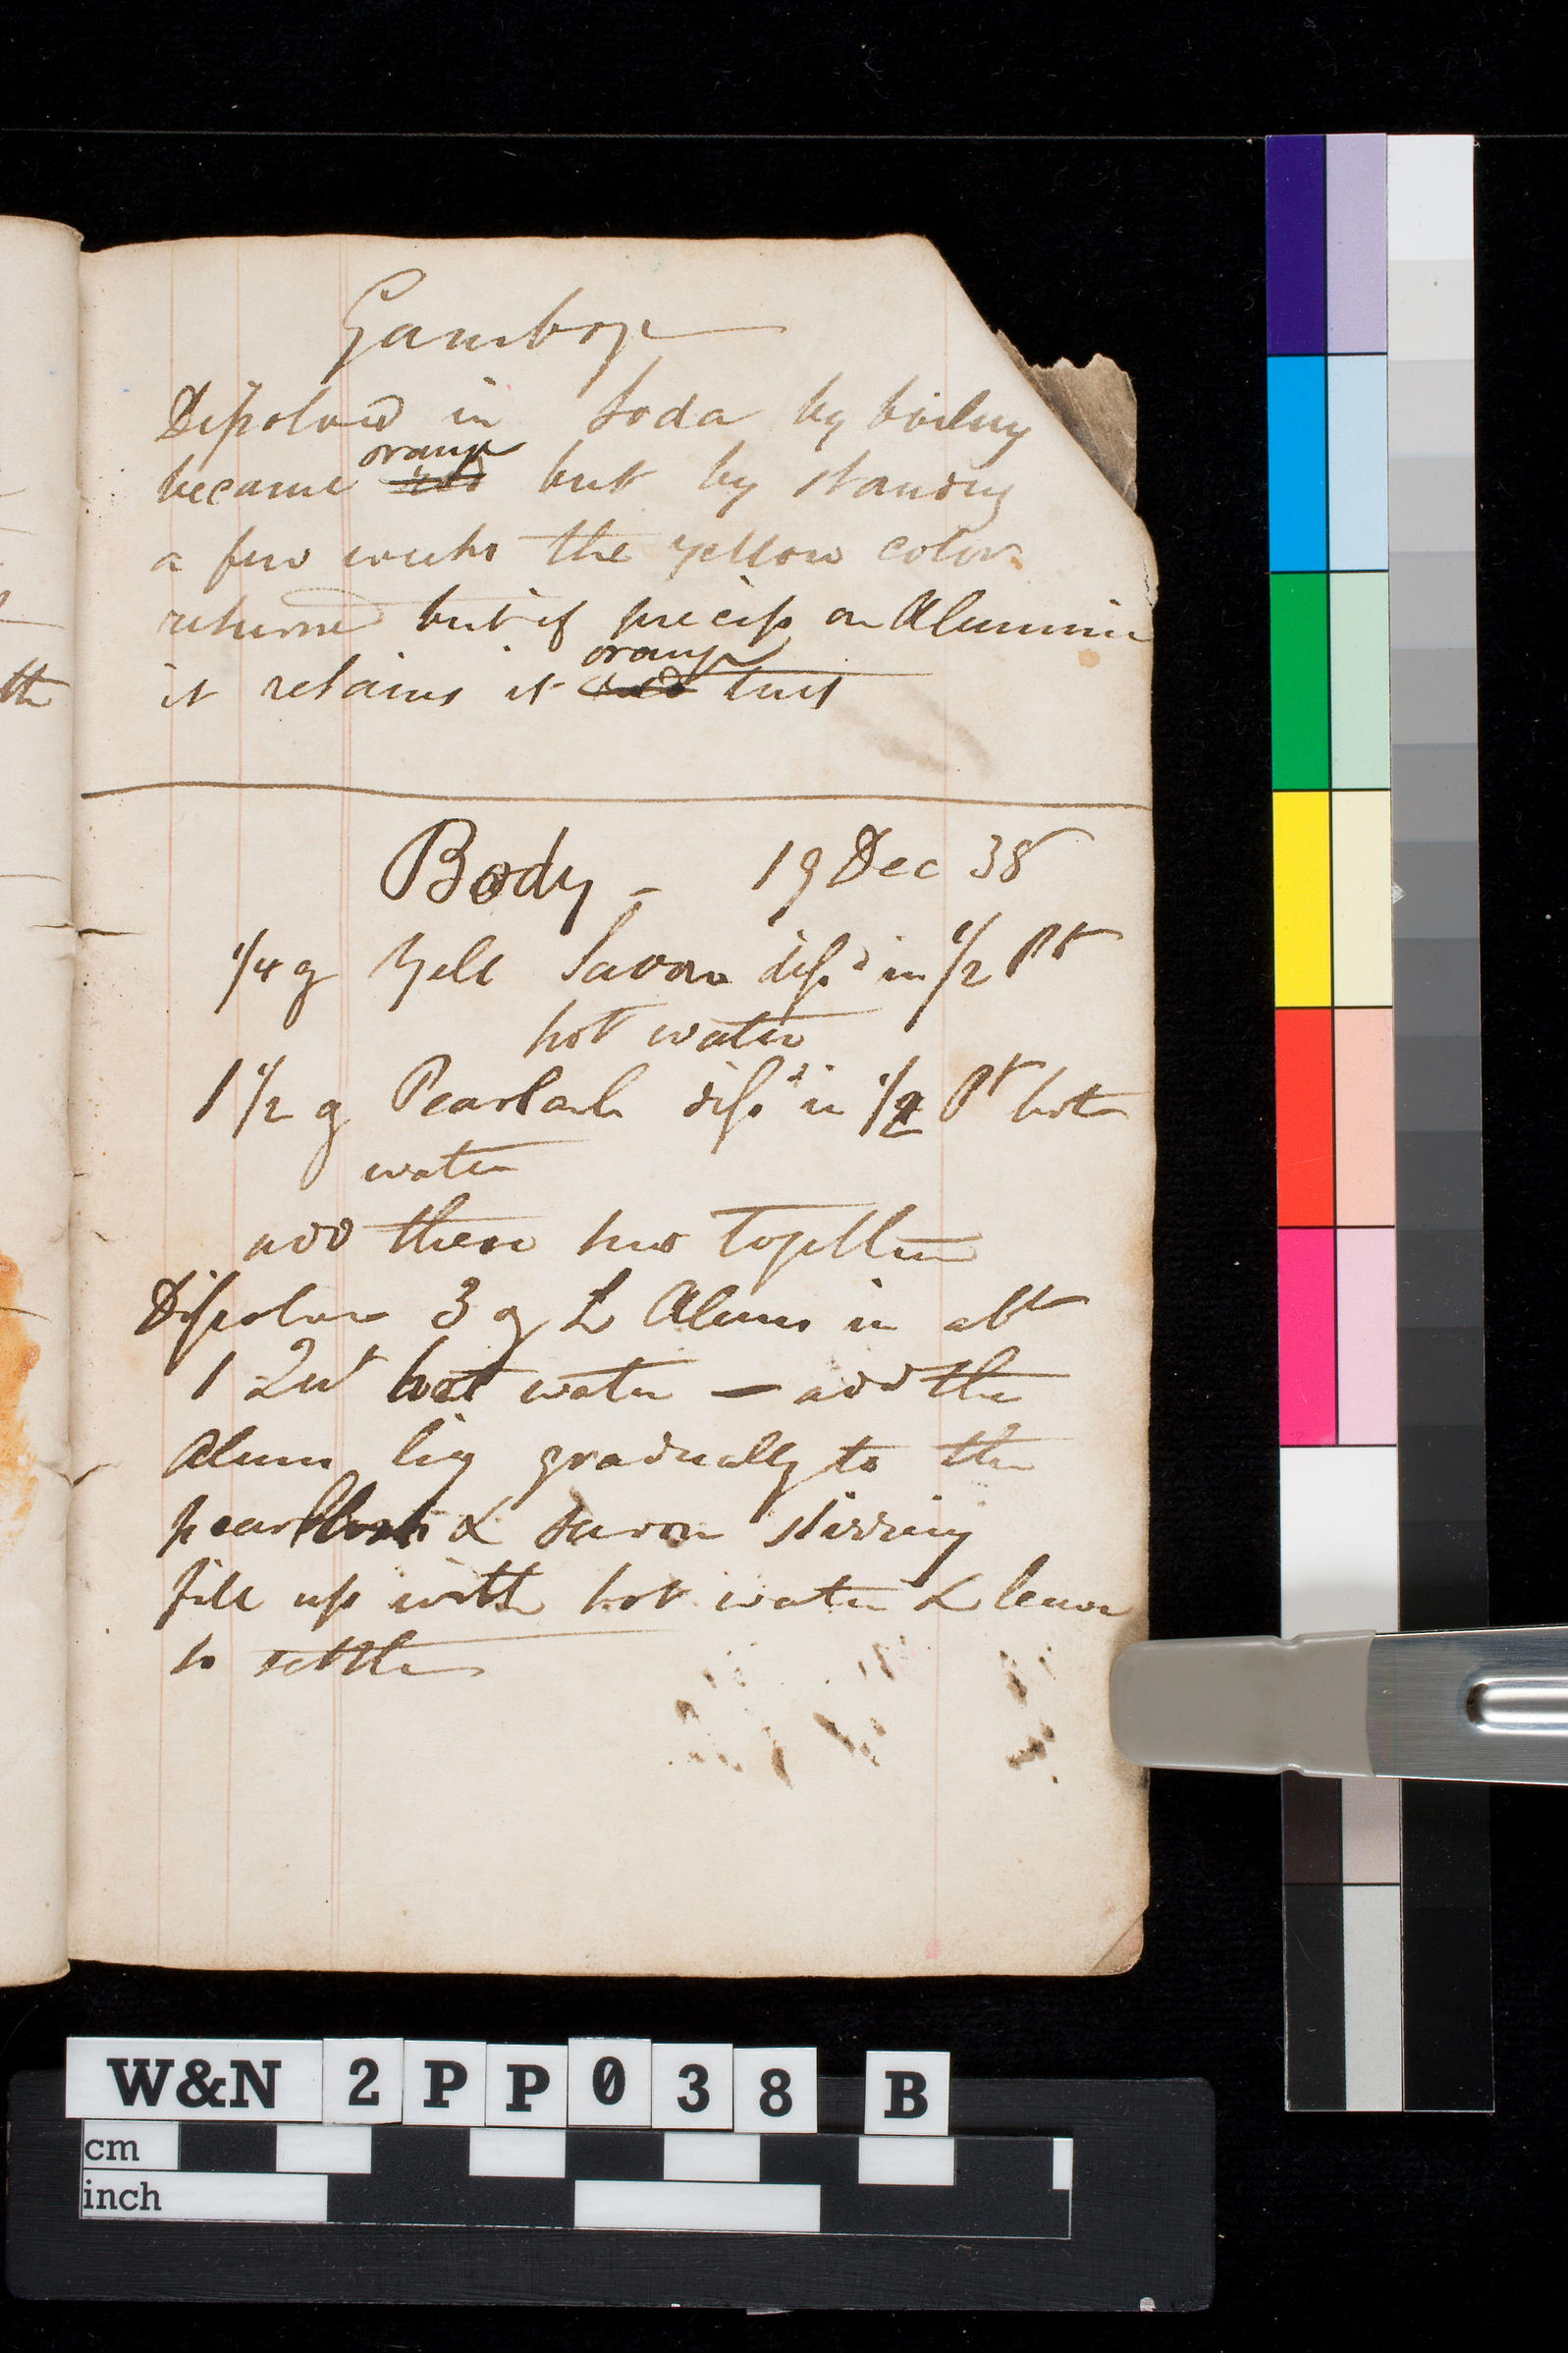 Gamboge
Dissolved in Soda by boiling
orange
became red but by standing
a few weeks the yellow color
returned but if precip on Alumina
orange
it retains it red tint
th
Body - 19 Dec 38
1/4 g Yell Savon diss^d in 1/2 Pt
hot water
1 1/2 g Pearlash diss^d in 1/2 Pt hot
water
add these two together
Dissolve 3 g L Alum in abt
1 Qut hot water — add the
Alum liq gradually to the
pearlash & Savon stirring
fill up with hot water & leave
to settle
W&N 2PP038 B
cm
inch